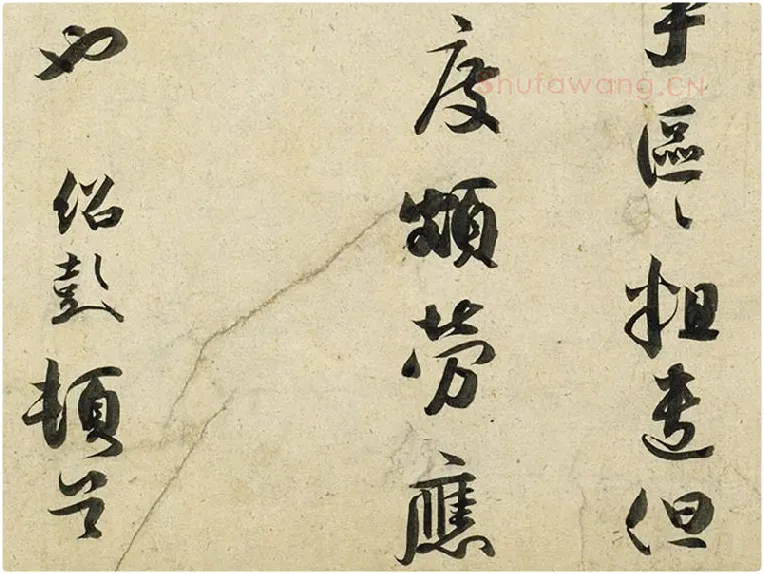 區〻粗遣但
度頗勞應
也
紹彭頓首
Shufawang.CN